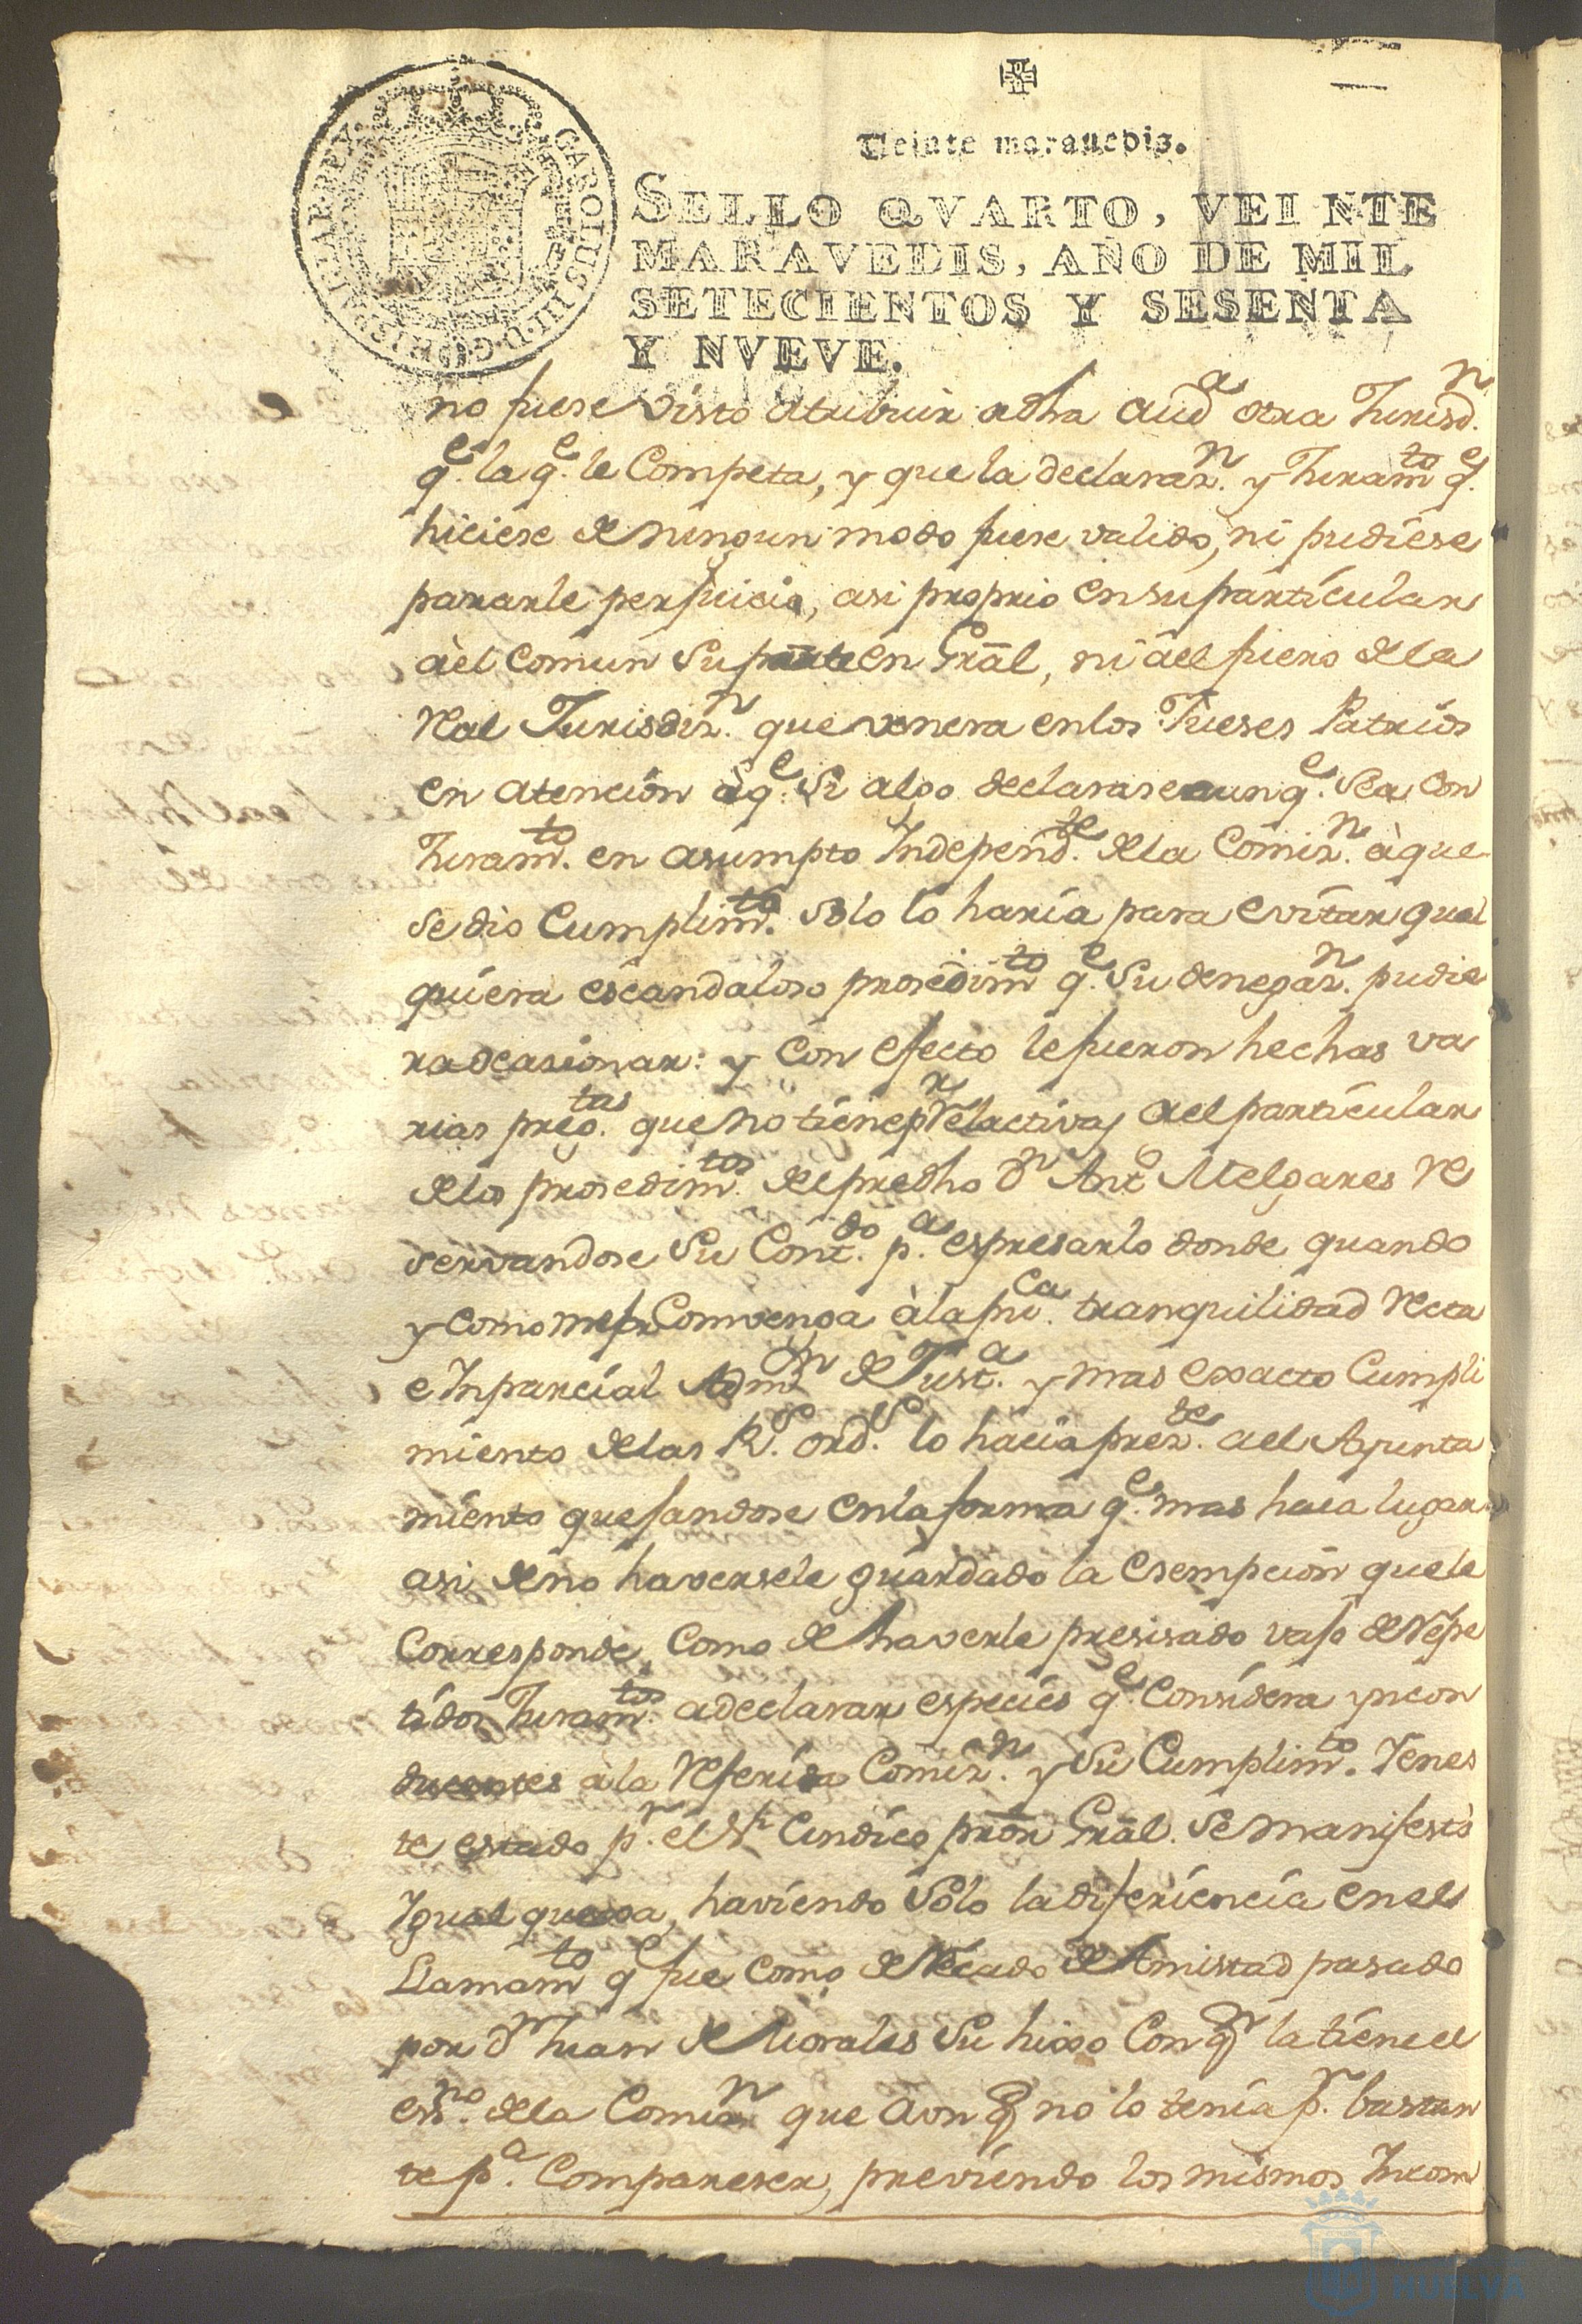 Veinte maravedis.
SELLO QVARTO, VEINTE
MARAVEDIS, AÑO DE MIL
SETECIENTOS Y SESENTA
Y NVEVE.
CAROLUS III D G HISP
no fuese visto atribuir a dha Audᵃ otra Jurisdⁿ.
qᵉ. la qᵉ. le Competa, y que la declarazⁿ. y Juramᵗᵒ qᵉ.
hiciese de ningun modo fuese valido, ni pudiese
pararle perjuicio, asi proprio en su particular
àel comun Su parte en Grãl, ni àel fuero de la
Real Jurisdizⁿ. que venera en los Jueses Patrios
en atención àqᵉ. Si algo declarase aunqᵉ. Sea con
Juramᵗᵒ. en asumpto Independᵗᵉ. de la Comizⁿ. àque
se dio Cumplimᵗᵒ. solo lo haría para evitar qual
quiera escandaloso prosedimᵗᵒ qᵉ. Su denegazⁿ. pudie
ra ocasionar: y con efecto le fueron hechas va
rias pregᵗᵃˢ. que no tienen relactiva, ael particular
de los prosedimᵗᵒˢ. del predho Dⁿ Antᵒ Melgares re
servandose Su Contᵈᵒ. pᵃ. espresarlo donde quando
y como mejor Convenga à la puᶜᵃ. tranquilidad recta
e Inparcial Admᵒⁿ de Justᵃ. y mas exacto Cumpli
miento de las Rˢ. ordˢ. lo hacia prezᵗᵉ. ael Ayunta
miento quejandose en la forma qᵉ. mas haia lugar
asi de no haversele guardado la esempcion que le
Corresponde, Como de haverle presisado vajo de repe
tidos Juramᵗᵒˢ. a declarar especies qᵉ. Considera yncon
ducentes à la referida Comizⁿ. y Su Cumplimᵗᵒ. Y en es
te estado pʳ. el Sʳ Cindico prõr Grãl. Se manifestò
Igual quexa, haviendo Solo la diferiencia en el
Llamamᵗᵒ qᵉ fue como de recado de Amistad pasado
por Dⁿ Juan de Morales Su hixo Con qⁿ la tiene el
essⁿᵒ. de la Comizⁿ que aonqᵉ no lo tenía pʳ. bastan
te pᵃ. Compareser, previendo los mismos Incom
HUELVA